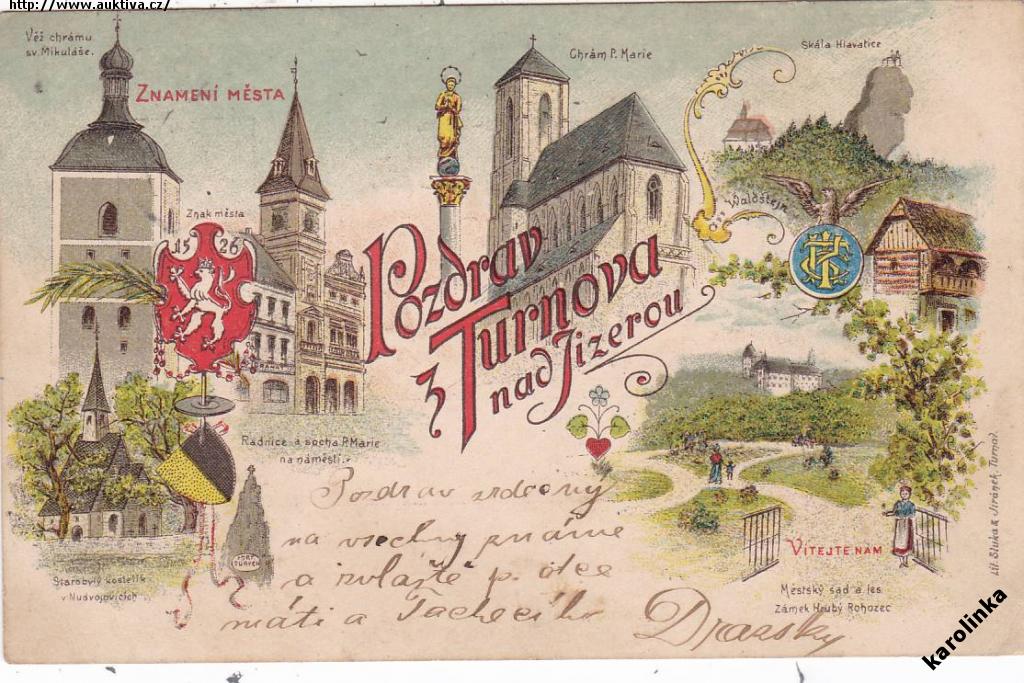 http://www.auktiva.cz/
Věž chrámu
sv. Mikuláše.
ZNAMENÍ MĚSTA
Chrám P. Marie
Skála Hlavatice
Znak města
15 26
Waldštejn
Pozdrav
z Turnova
nad Jizerou
Radnice a socha P. Marie
na náměstí.
Starobylý kostelík
v Nudvojovicích
VÍTEJTE NÁM
Městský sad a les
Zámek Hrubý Rohozec
Lit. Sluka & Jiránek, Turnov.
Pozdrav srdečný
na všechny známé
a zvláště p. otce
máti a
karolinka